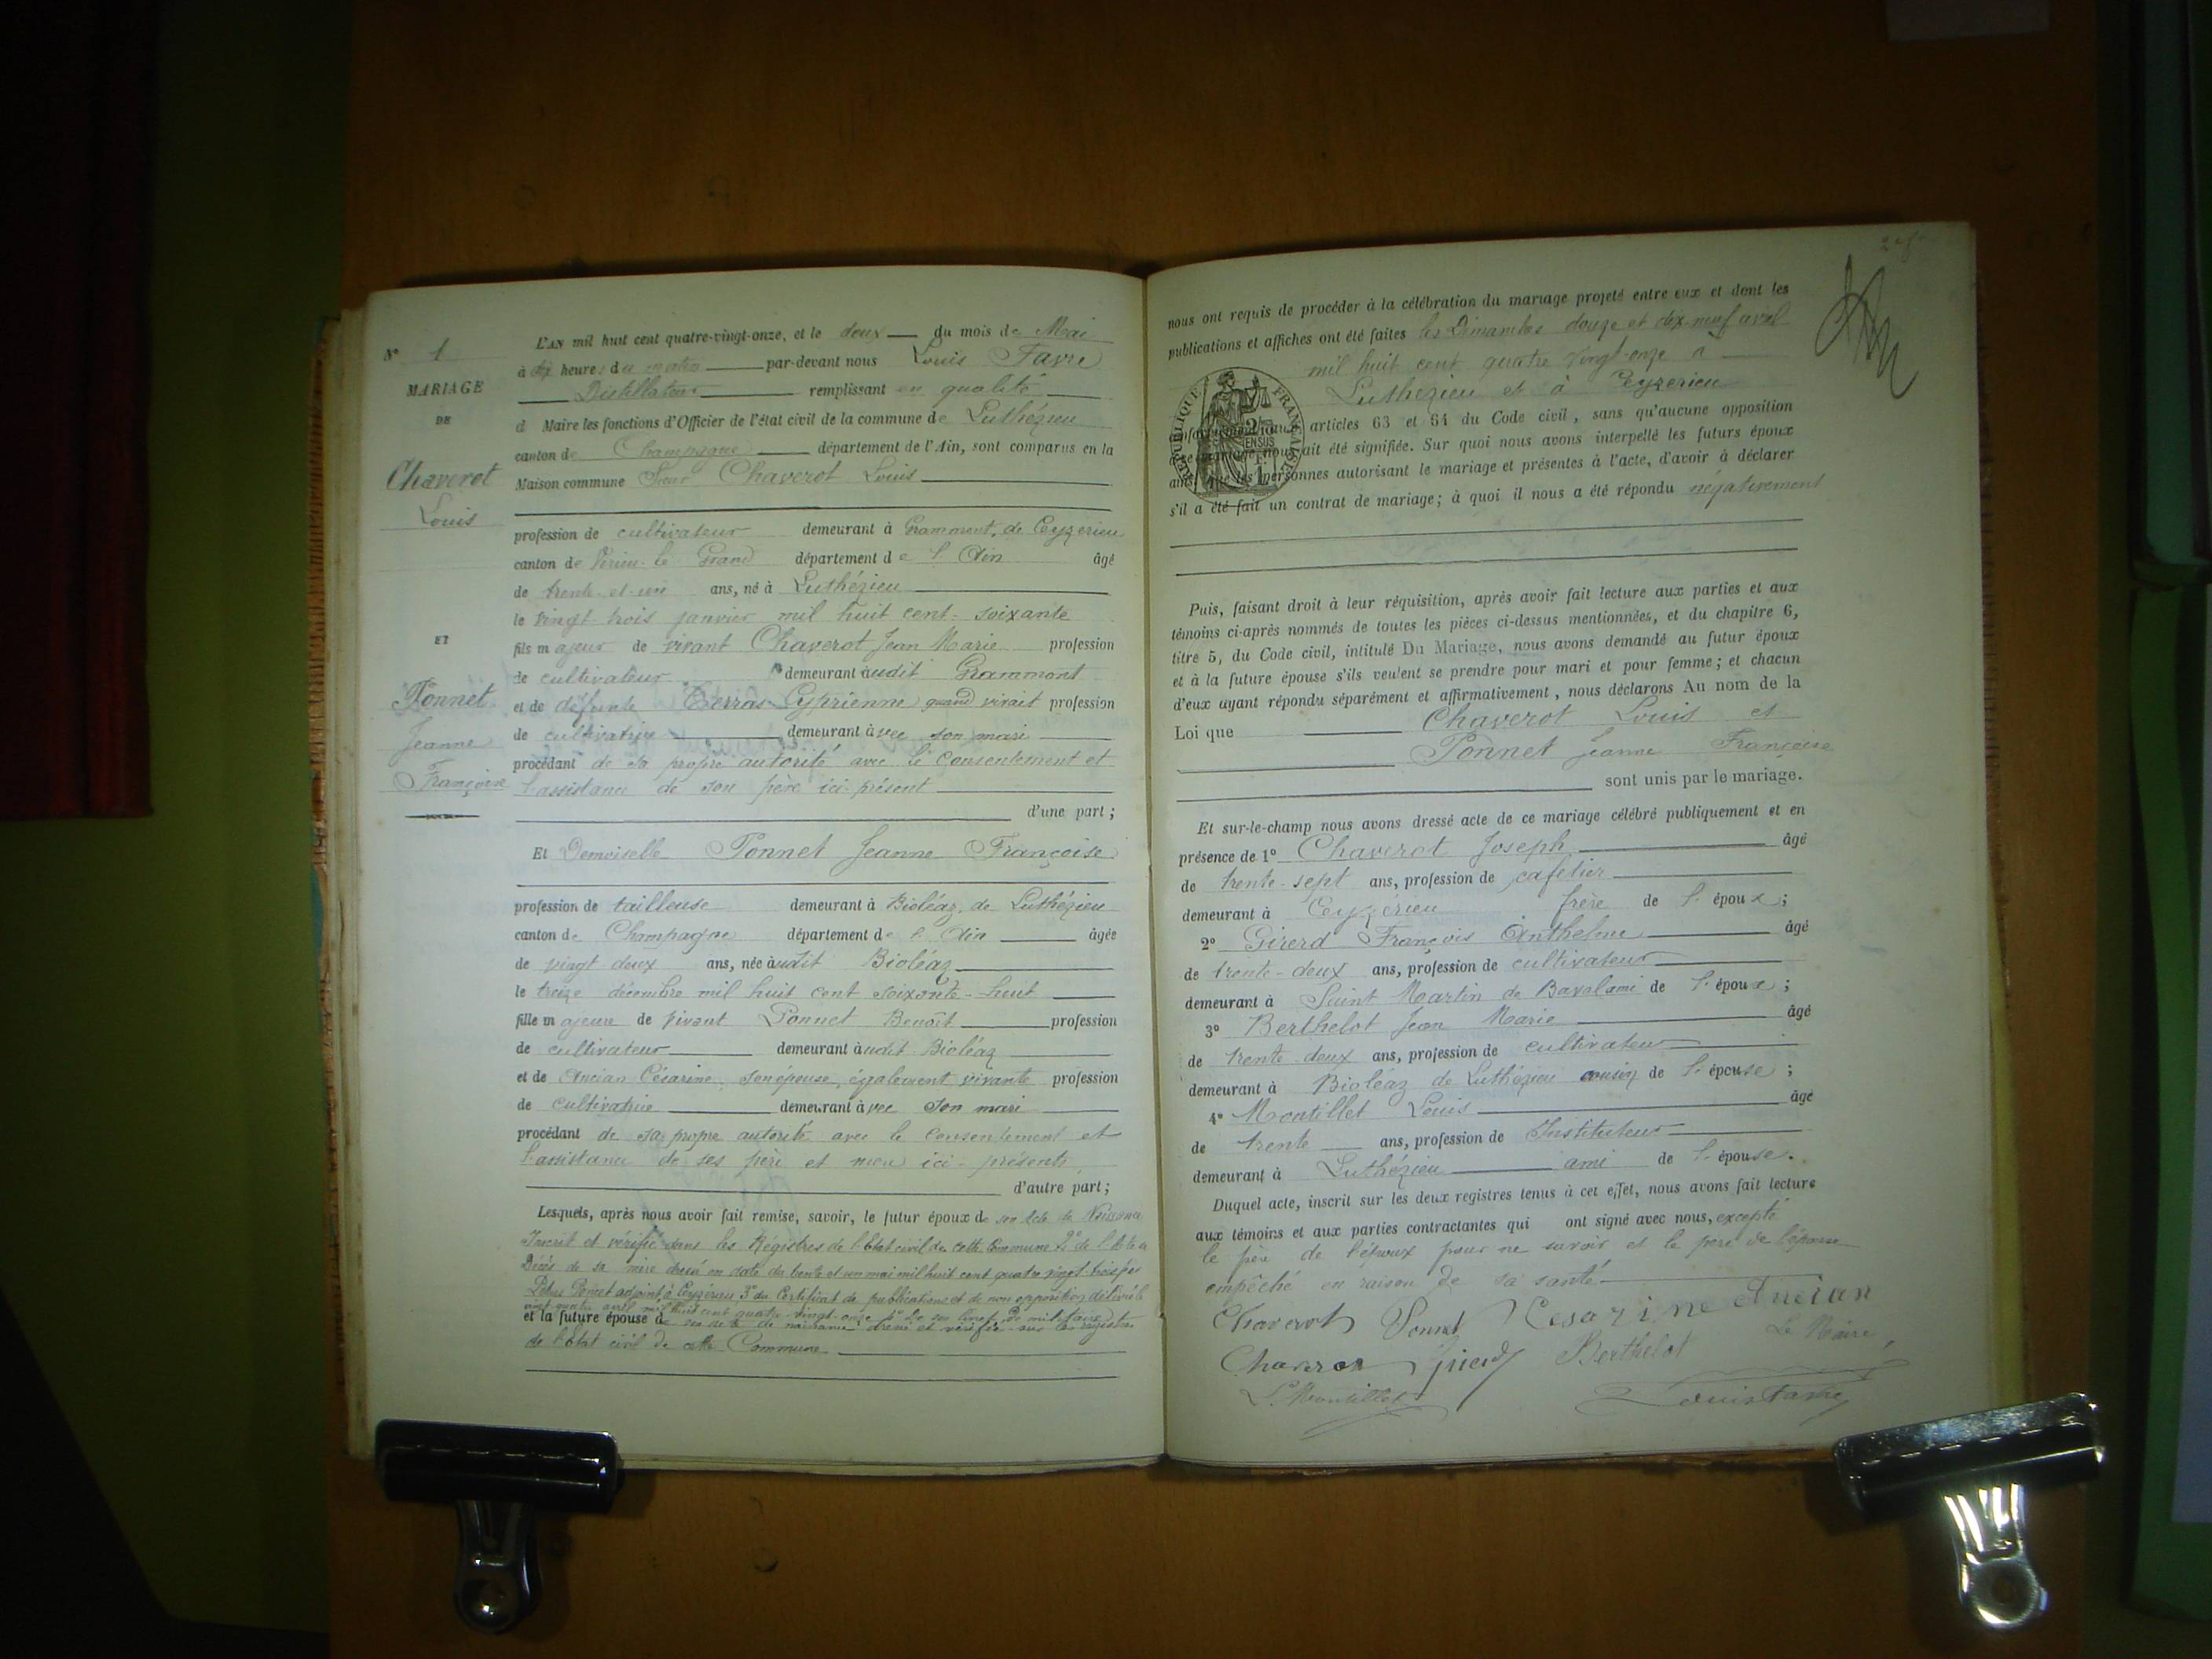 N° 1
MARIAGE
DE
Chaverot
Louis
ET
Ponnet
Jeanne
Françoise
L'AN mil huit cent quatre-vingt-onze, et le deux du mois de Mai
à dix heures du matin par-devant nous Louis Favre
Distillateur remplissant en qualité
d Maire les fonctions d'Officier de l'état civil de la commune de Luthézieu
canton de Champagne département de l'Ain, sont comparus en la
Maison commune Sieur Chaverot Louis
profession de cultivateur demeurant à Grammont, de Ceyzerieu
canton de Virieu-le Grand département de l'Ain âgé
de trente-et-un ans, né à Luthézieu
le vingt-trois janvier mil huit cent-soixante
fils majeur de vivant Chaverot Jean Marie profession
de cultivateur demeurant audit Grammont
et de défunte Cyprienne quand vivait profession
de cultivatrice demeurant avec son mari
procédant de sa propre autorité avec le consentement et
l'assistance de son père ici-présent
d'une part ;
Et Demoiselle Ponnet Jeanne Françoise
profession de tailleuse demeurant à Bioléaz, de Luthézieu
canton de Champagne département de l'Ain âgée
de vingt-deux ans, née audit Bioléaz
le treize décembre mil huit cent soixante-huit
fille majeure de vivant Ponnet Benoît profession
de cultivateur demeurant audit Bioléaz
et de Ancian Césarine, son épouse, également vivante profession
de cultivatrice demeurant avec son mari
procédant de sa propre autorité avec le consentement et
l'assistance de ses père et mère ici-présents
d'autre part ;
Lesquels, après nous avoir fait remise, savoir, le futur époux de son acte de Naissance
Inscrit et vérifié dans les Régistres de l'Etat civil de cette Commune 2° de l'Acte de
Décès de sa mère dressé en date du trente et un mai mil huit cent quatre vingt-trois par
adjoint à Ceyzerieu, 3° du Certificat de publications et de non opposition délivré le
vingt-quatre avril mil huit cent quatre-vingt-onze 4° de son livret militaire
et la future épouse de son acte de naissance dressé et vérifié sur les registres
de l'Etat civil de cette Commune
nous ont requis de procéder à la célébration du mariage projeté entre eux et dont les
publications et affiches ont été faites les Dimanches douze et dix-neuf avril
mil huit cent quatre vingt-onze à
Luthézieu et à Ceyzerieu
RÉPUBLIQUE FRANÇAISE
conformément aux articles 63 et 64 du Code civil, sans qu'aucune opposition
à ce mariage nous ait été signifiée. Sur quoi nous avons interpellé les futurs époux
ainsi que les personnes autorisant le mariage et présentes à l'acte, d'avoir à déclarer
s'il a été fait un contrat de mariage ; à quoi il nous a été répondu négativement
Puis, faisant droit à leur réquisition, après avoir fait lecture aux parties et aux
témoins ci-après nommés de toutes les pièces ci-dessus mentionnées, et du chapitre 6,
titre 5, du Code civil, intitulé Du Mariage, nous avons demandé au futur époux
et à la future épouse s'ils veulent se prendre pour mari et pour femme ; et chacun
d'eux ayant répondu séparément et affirmativement, nous déclarons Au nom de la
Loi que Chaverot Louis et
Ponnet Jeanne Françoise
sont unis par le mariage.
Et sur-le-champ nous avons dressé acte de ce mariage célébré publiquement et en
présence de 1° Chaverot Joseph âgé
de trente-sept ans, profession de cafetier
demeurant à Ceyzérieu frère de l'époux ;
2° Girerd François Anthelme âgé
de trente-deux ans, profession de cultivateur
demeurant à Saint Martin de Bavel ami de l'époux ;
3° Berthelot Jean Marie âgé
de trente-deux ans, profession de cultivateur
demeurant à Bioléaz de Luthézieu cousin de l'épouse ;
4° Montillet Louis âgé
de trente ans, profession de Instituteur
demeurant à Luthézieu ami de l'épouse.
Duquel acte, inscrit sur les deux registres tenus à cet effet, nous avons fait lecture
aux témoins et aux parties contractantes qui ont signé avec nous, excepté
le père de l'époux pour ne savoir et le père de l'épouse
empêché en raison de sa santé
Chaverot Ponnet Césarine Ancian
Chaverot Girerd Berthelot Le Maire,
L. Montillet Louis Favre